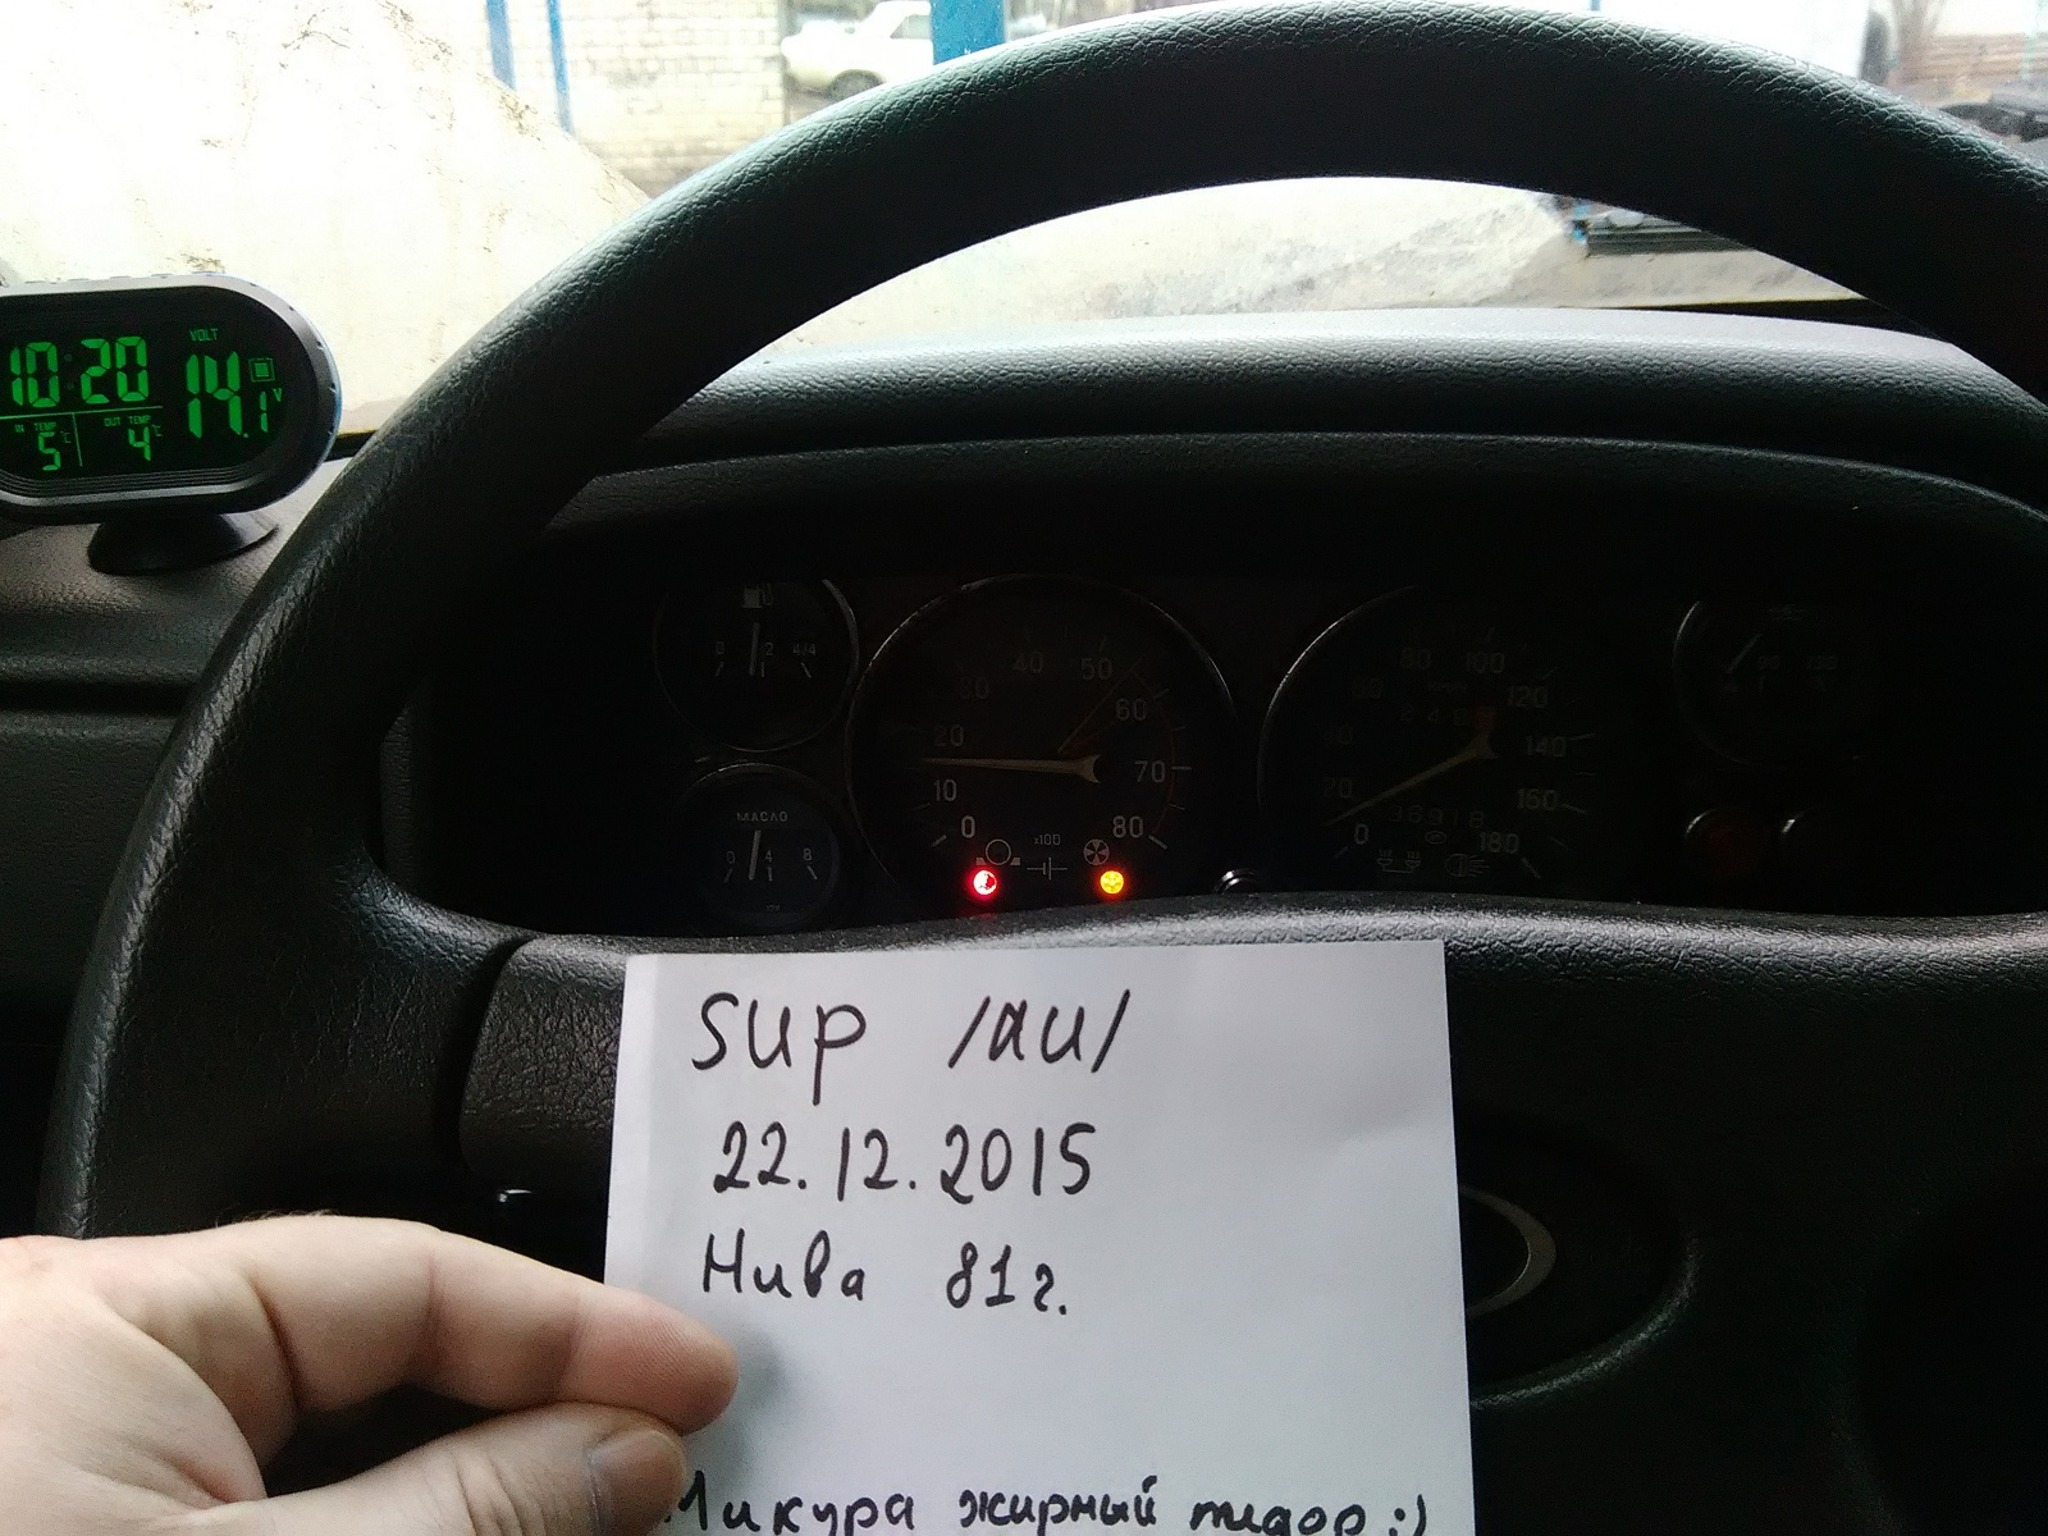 10:20
VOLT
14.1 V
IN TEMP
5 °C
OUT TEMP
4 °C
0 1 2 4/4
МАСЛО
0 4 8
0 10 20 30 40 50 60 70 80
x100
0 20 40 60 80 100 120 140 160 180
sup /au/
22.12.2015
Нива 81г.
Микура жирный пидор :)